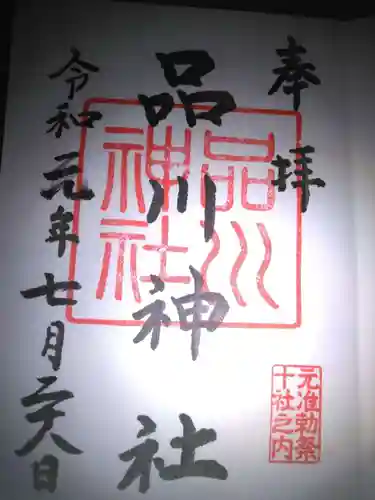 奉拝
品川神社
品川神社
元准勅祭
十社之内
令和元年七月二十八日